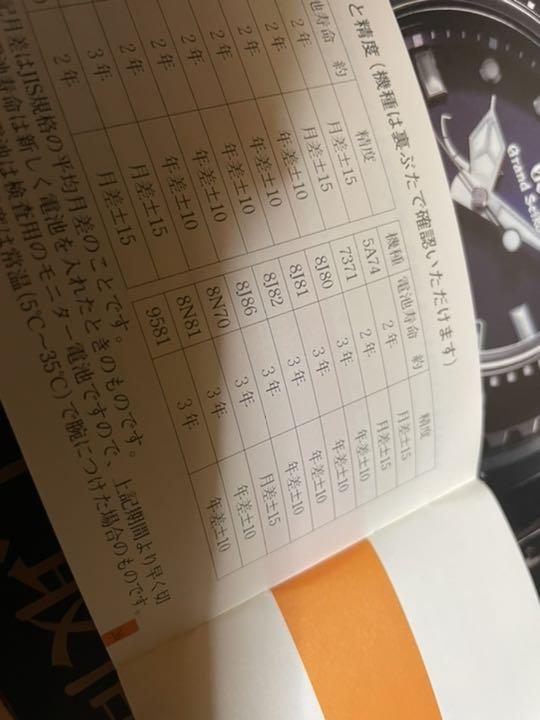 と精度(機種は裏ぶたで確認いただけます)
池寿命 約 精度
2年 月差±15
2年 月差±15
2年 年差±10
2年 年差±10
2年 年差±10
2年 年差±10
2年 年差±10
3年 月差±15
2年 月差±15
機種 電池寿命 約 精度
5A74 2年 月差±15
7371 2年 月差±15
8J80 3年 年差±10
8J81 3年 年差±10
8J82 3年 年差±10
8J86 3年 年差±10
8N70 3年 月差±15
8N81 3年 年差±10
9581 3年 年差±10
月差はJIS規格の平均月差のことです。
池寿命は新しく電池を入れたときのものです。
電池は検査用のモニター電池ですので、上記期間より早く切
は常温(5℃〜35℃)で腕につけた場合のものです。
Grand Seiko